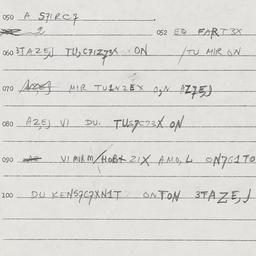 050 A S7IRC7
2 052 EQ FART3X
060 3TAZEJ TU,C7IZ73X ON /TU MIR ON
070 MIR TU1NZEX O,N AZ7EJ
080 AZEJ VI DU. TUS7C73X ON
090 VIMRM/HOBX ZIX AMO,L ON7G1TO
100 DU KENS7C7XN1T ONTON 3TAZE,J